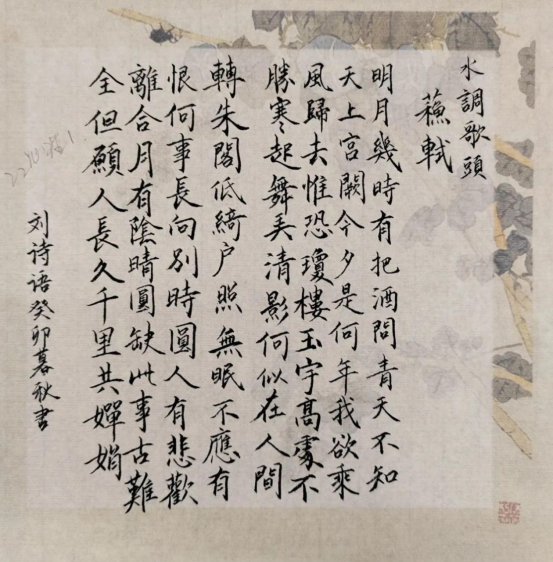 水調歌頭
蘓軾
明月幾時有把酒問青天不知
天上宮闕今夕是何年我欲乘
風歸去惟恐瓊樓玉宇髙處不
勝寒起舞弄清影何似在人間
轉朱閣低綺户照無眠不應有
恨何事長向别時圓人有悲歡
離合月有陰晴圓缺此事古難
全但願人長久千里共嬋娟
刘诗语癸卯暮秋書